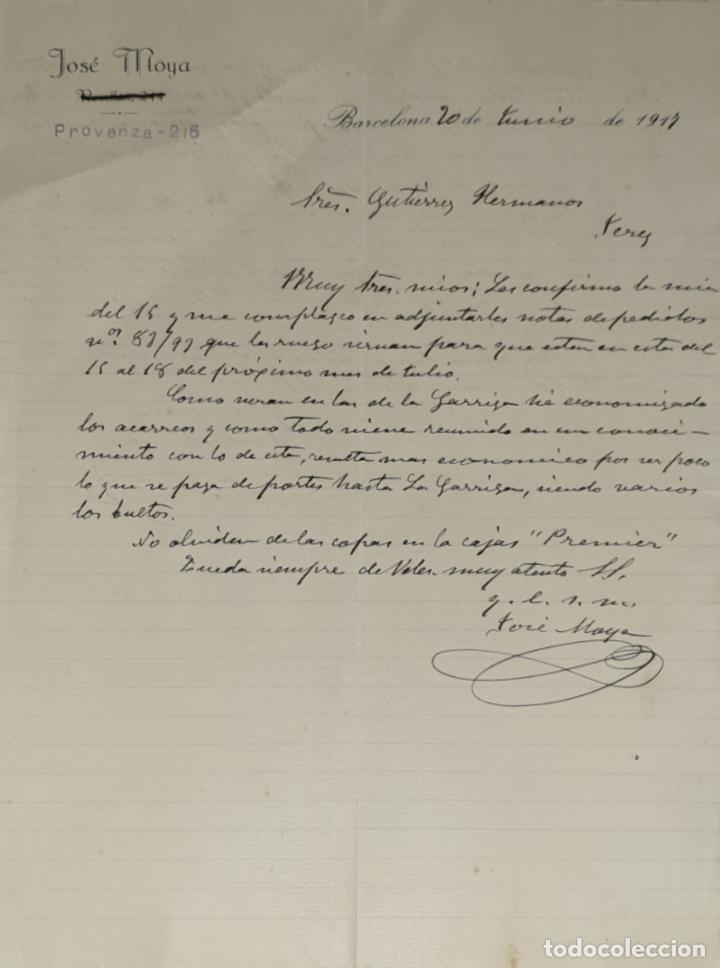 José Moya
Rosellón, 211
Provenza-216
Barcelona 20 de Junio de 1917
Sres. Gutiérrez Hermanos
Jerez
Muy Sres. mios: Les confirmo la mia
del 15 y me complazco en adjuntarles notas de pedidos
nos. 83/93 que les ruego sirvan para que esten en esta del
15 al 18 del próximo mes de Julio.
Como veran en las de la Garriga hé economizado
los acarreos y como todo viene reunido en un conoci-
miento con lo de esta, resulta mas economico por ser poco
lo que se paga de portes hasta La Garriga, siendo varios
los bultos.
No olviden de las copas en la cajas "Premier"
Queda siempre de Vdes. muy atento S.S.
q. b. s. m.
José Moya
todocoleccion